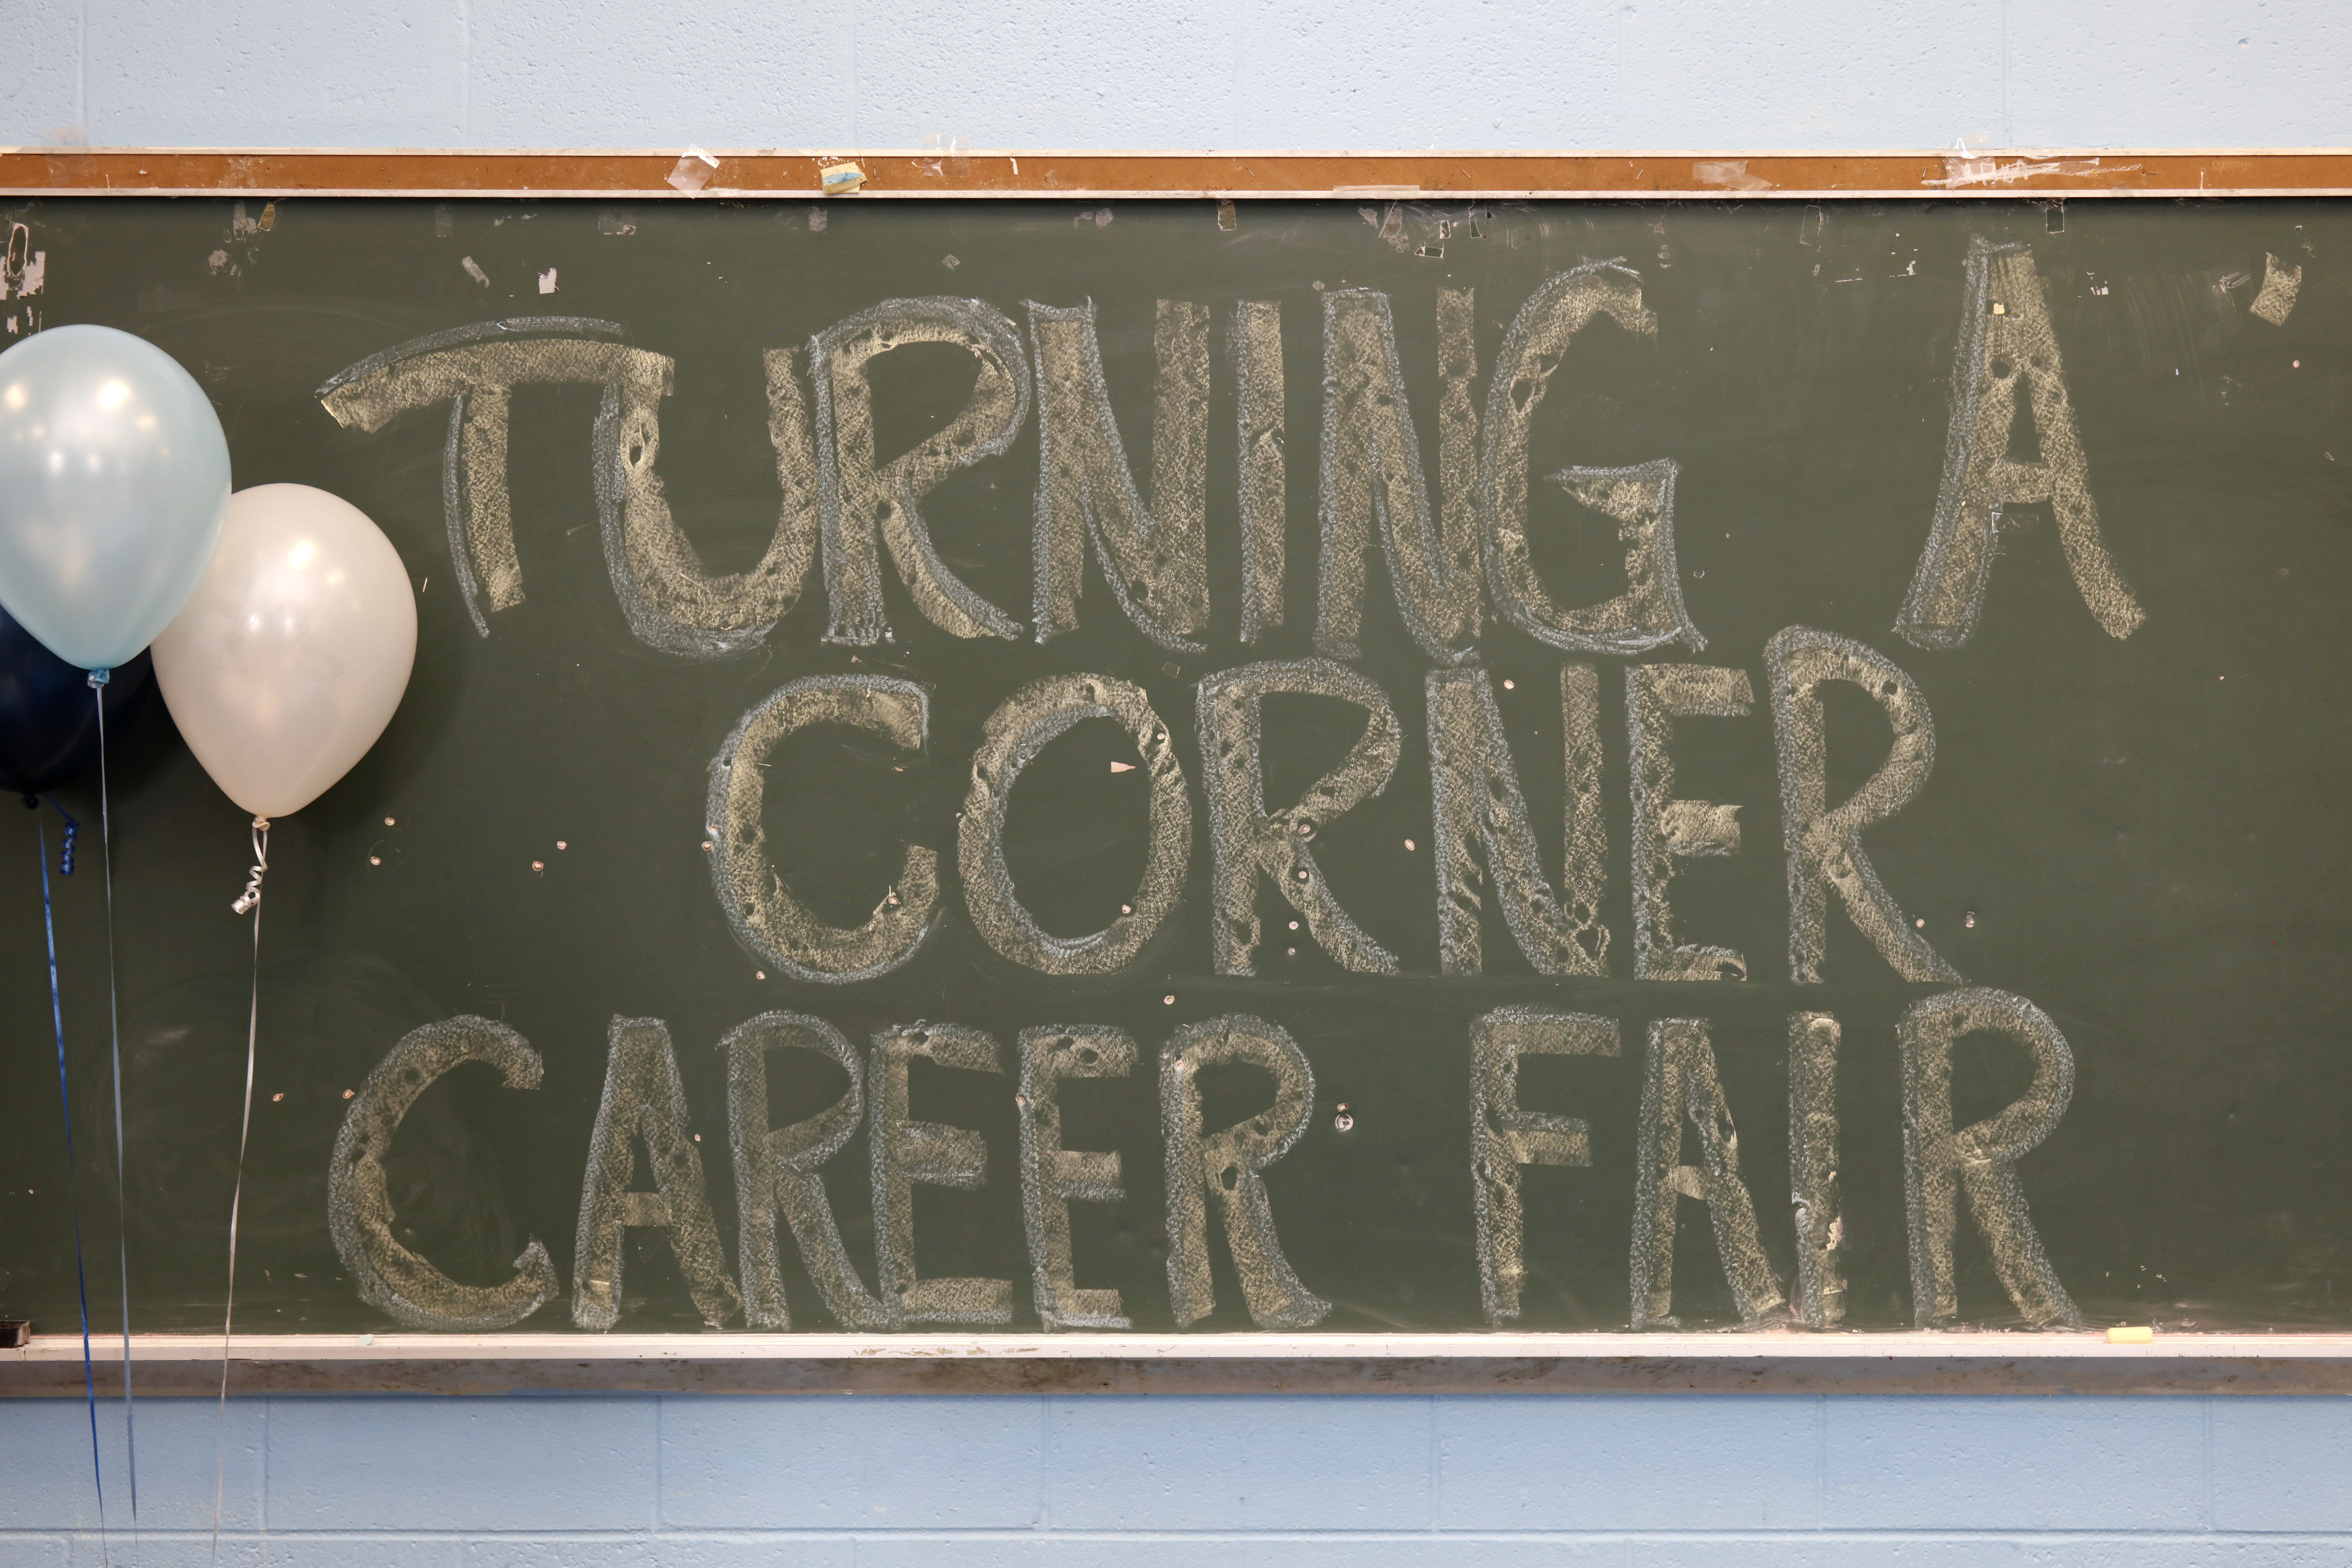 TURNING A
CORNER
CAREER FAIR